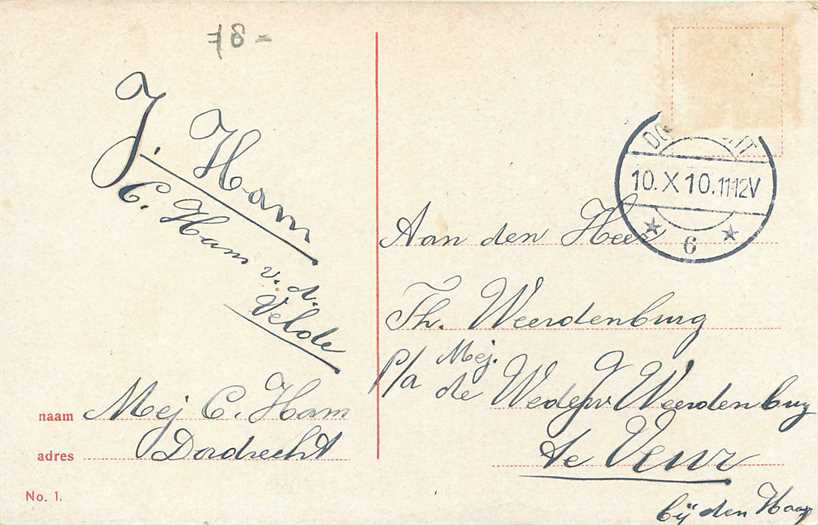 J. Ham
C. Ham v. d.
Velde
naam Mej C. Ham
adres Dordrecht
No. 1.
10.X10.11-12V
6
Aan den Heer
Th. Weerdenburg
p/a Mej.
de Wedew Weerdenburg
te Veur
bij den Haag